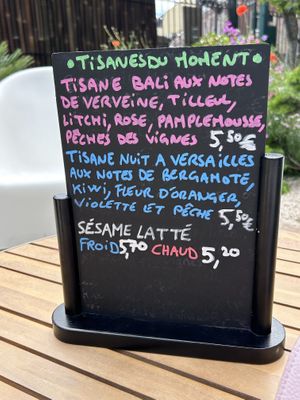 • TISANES DU MOMENT •
TISANE BALI AUX NOTES
DE VERVEINE, TILLEUL,
LITCHI, ROSE, PAMPLEMOUSSE,
PÊCHES DES VIGNES 5,50€
TISANE NUIT A VERSAILLES
AUX NOTES DE BERGAMOTE,
KIWI, FLEUR D'ORANGER,
VIOLETTE ET PÊCHE 5,50€
SÉSAME LATTÉ
FROID 5,70 CHAUD 5,20